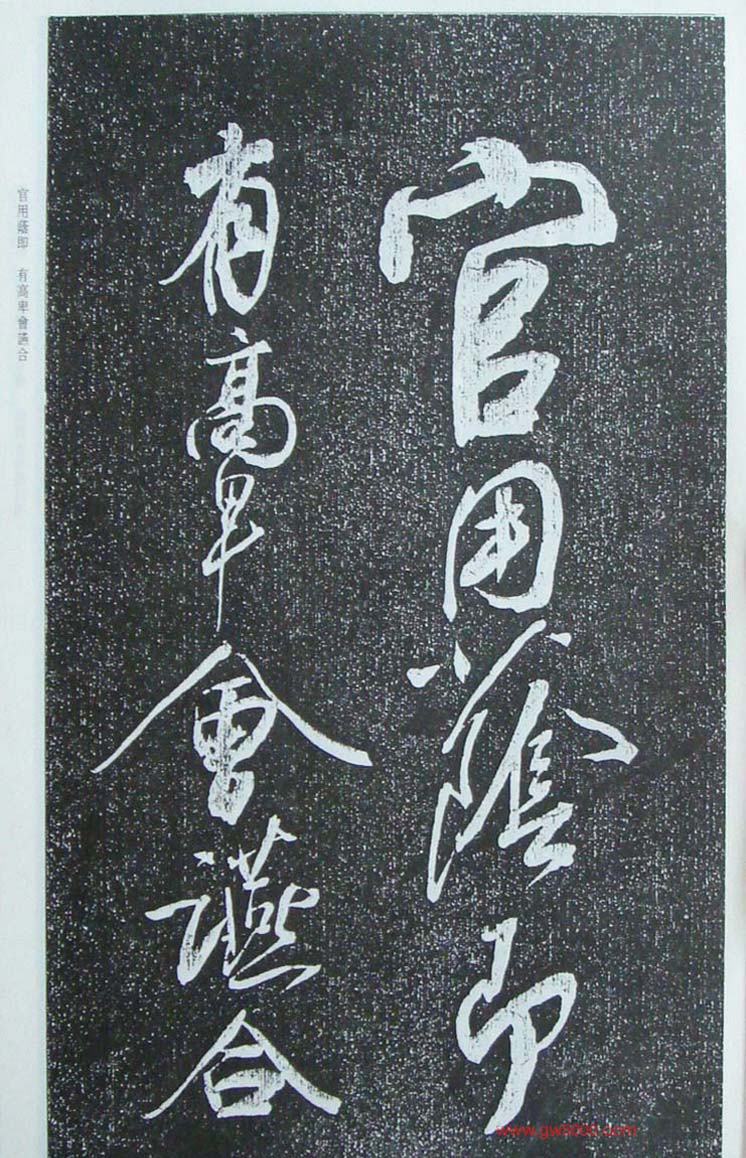 官用蔭即
有高卑會讌合
官用蔭即 有高卑會讌合
www.gw8000.com